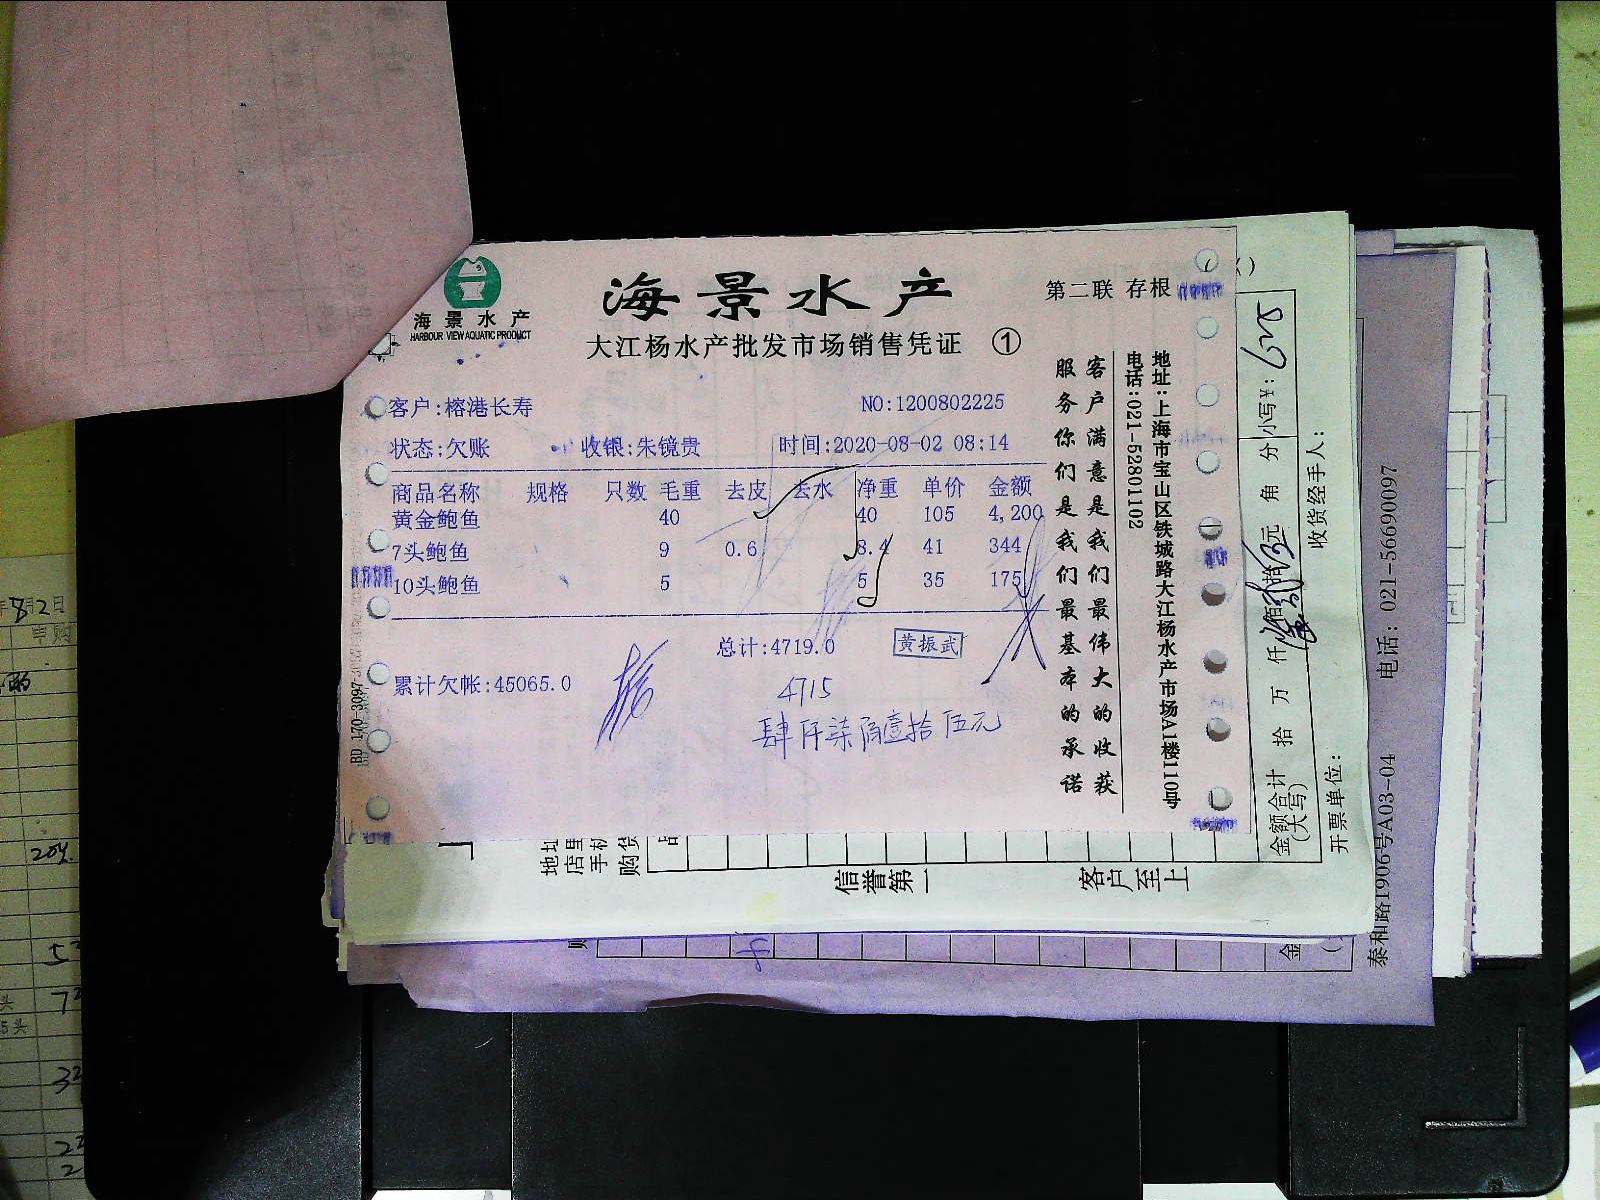 海景水产
HARBOUR VIEW AQUATIC PRODUCT
海景水产
第二联 存根
大江杨水产批发市场销售凭证 ①
客户:榕港长寿 NO:1200802225
状态:欠账 收银:朱镜贵 时间:2020-08-02 08:14
商品名称 规格 只数 毛重 去皮 去水 净重 单价 金额
黄金鲍鱼 40 40 105 4,200
7头鲍鱼 9 0.6 8.4 41 344
10头鲍鱼 5 5 35 175
总计:4719.0 黄振武
累计欠帐:45065.0
4715
肆仟柒佰壹拾伍元
客户满意是我们最伟大的收获
服务你们是我们最基本的承诺
地址:上海市宝山区铁城路大江杨水产市场A1楼110号
电话:021-52801102
BD 170-3097
金额合计(大写) 拾 万 仟 佰 拾 元 角 分 小写¥:
开票单位: 收货经手人:
信誉第一 客户至上
地址
店里
手机
购货
泰和路1906号A03-04 电话: 021-56690097
8月2日
申购